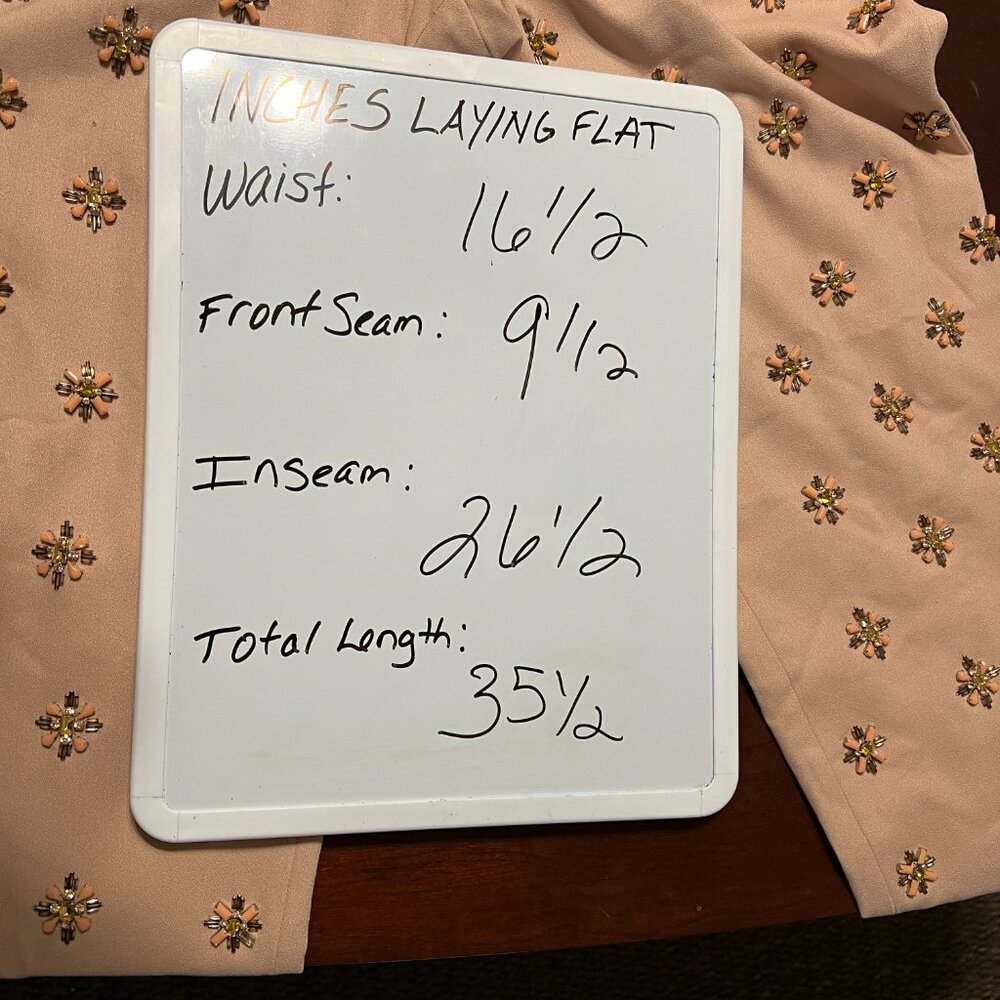 INCHES LAYING FLAT
Waist: 16 1/2
Front Seam: 9 1/2
Inseam: 26 1/2
Total Length: 35 1/2